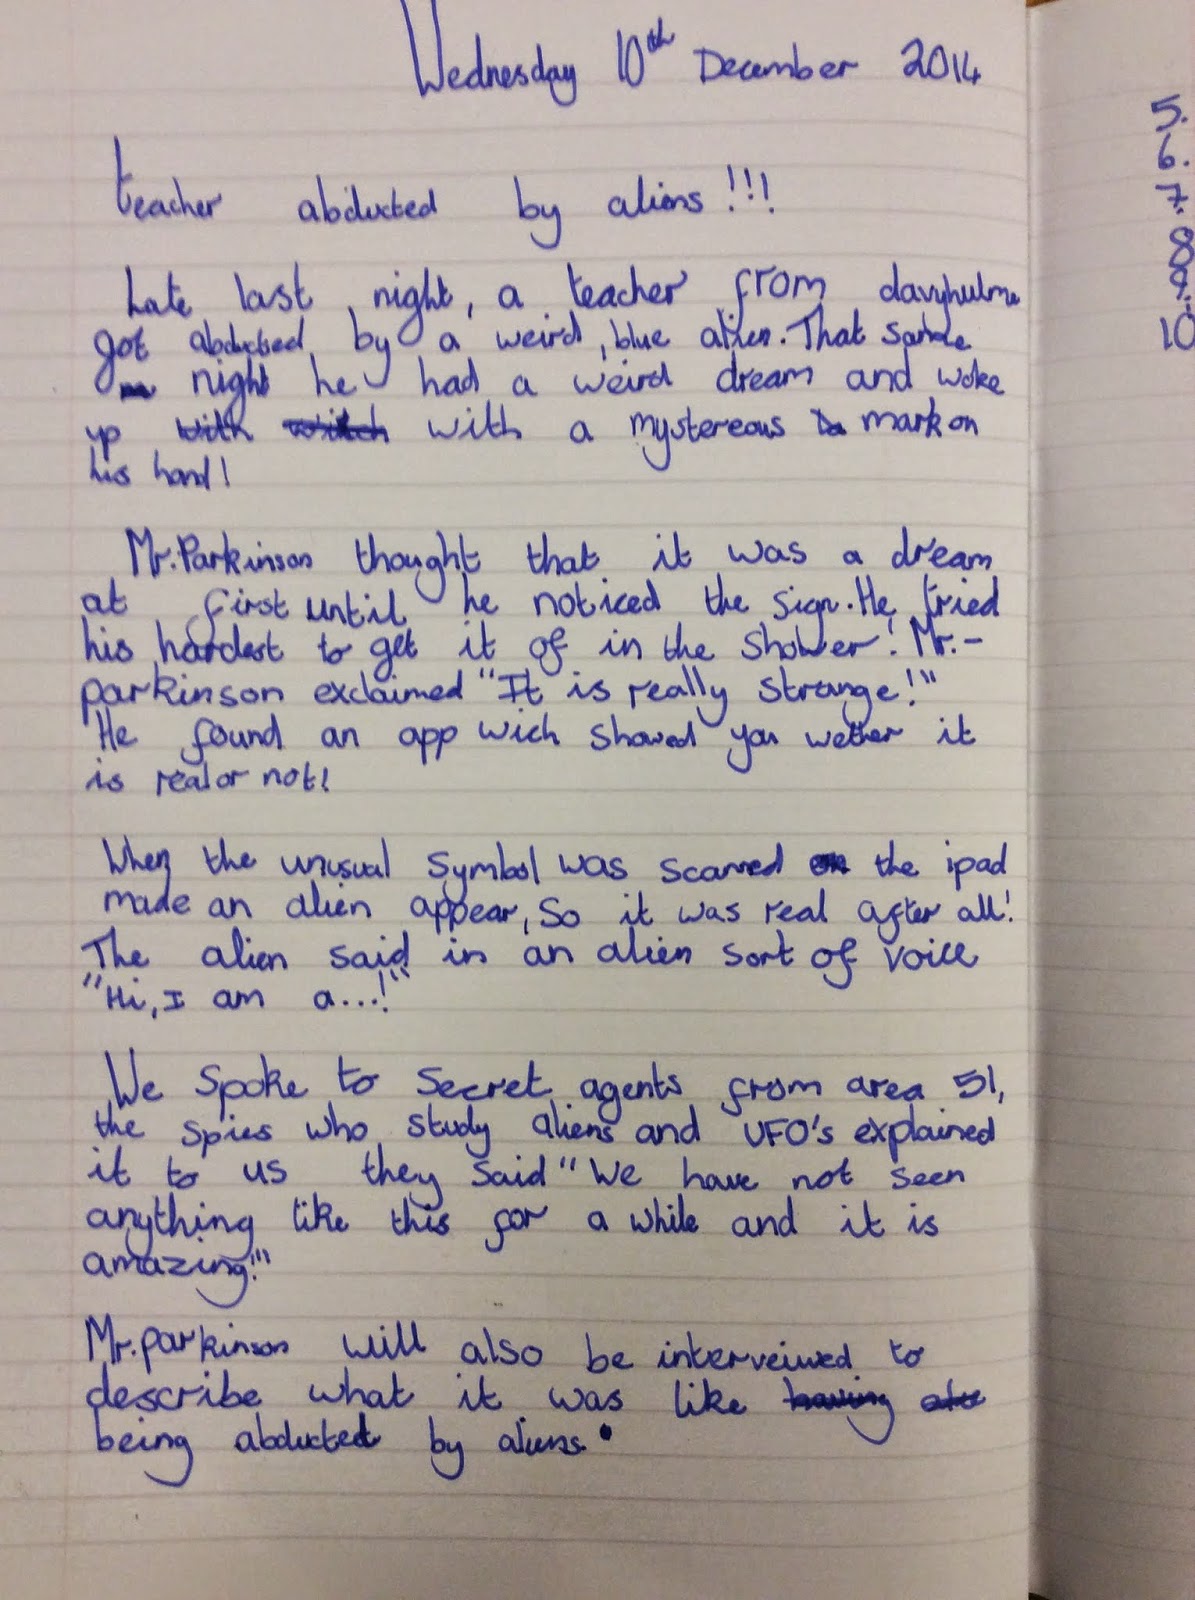 Wednesday 10th December 2014
teacher abducted by aliens!!!
Late last night, a teacher from davyhulme
got abducted by a weird, blue alien. That same
night he had a weird dream and woke
up with a mystereous mark on
his hand!
Mr. Parkinson thought that it was a dream
at first until he noticed the sign. He tried
his hardest to get it of in the shower! Mr.-
parkinson exclaimed "It is really strange!"
He found an app wich showed you wether it
is real or not!
When the unusual symbol was scanned the ipad
made an alien appear, so it was real after all!
The alien said in an alien sort of voice
"Hi, I am a...!"
We spoke to secret agents from area 51,
the spies who study aliens and UFO's explained
it to us they said "We have not seen
anything like this for a while and it is
amazing!"
Mr. parkinson will also be interveiwed to
describe what it was like
being abducted by aliens.
5.
6.
7.
8
9.
10